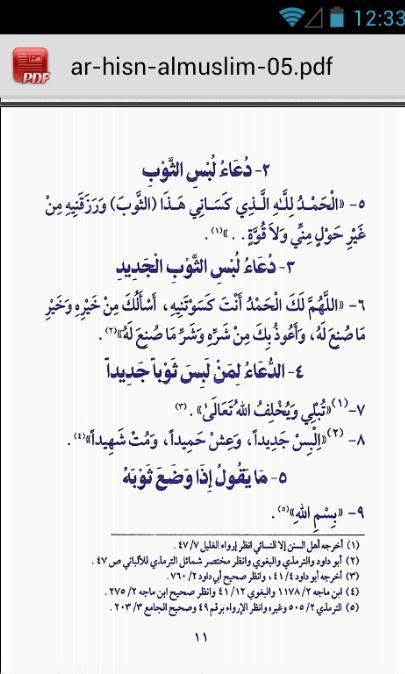 12:33
PDF
ar-hisn-almuslim-05.pdf
٢- دُعَاءُ لُبْسِ الثَّوْبِ
٥- «الْحَمْدُ لِلَّهِ الَّذِي كَسَانِي هَذَا (الثَّوبَ) وَرَزَقَنِيهِ مِنْ
غَيْرِ حَوْلٍ مِنِّي وَلاَ قُوَّةٍ. . »(١).
٣- دُعَاءُ لُبْسِ الثَّوْبِ الْجَدِيدِ
٦- «اللَّهُمَّ لَكَ الْحَمْدُ أَنْتَ كَسَوْتَنِيهِ، أَسْأَلُكَ مِنْ خَيْرِهِ وَخَيْرِ
مَا صُنِعَ لَهُ، وَأَعُوذُ بِكَ مِنْ شَرِّهِ وَشَرِّ مَا صُنِعَ لَهُ»(٢).
٤- الدُّعَاءُ لِمَنْ لَبِسَ ثَوْباً جَدِيداً
٧-(١) «تُبْلِي وَيُخْلِفُ اللهُ تَعَالَىٰ». (٣)
٨- (٢) «اِلْبِسْ جَدِيداً، وَعِشْ حَمِيداً، وَمُتْ شَهِيداً»(٤).
٥- مَا يَقُولُ إِذَا وَضَعَ ثَوْبَهُ
٩- «بِسْمِ اللهِ»(٥).
(١) أخرجه أهل السنن إلا النسائي انظر إرواء الغليل ٧/ ٤٧ .
(٢) أبو داود والترمذي والبغوي وانظر مختصر شمائل الترمذي للألباني ص ٤٧ .
(٣) أخرجه أبو داود ٤/ ٤١ ، وانظر صحيح أبي داود ٢/ ٧٦٠ .
(٤) ابن ماجه ٢/ ١١٧٨ والبغوي ١٢/ ٤١ وانظر صحيح ابن ماجه ٢/ ٢٧٥ .
(٥) الترمذي ٢/ ٥٠٥ وغيره وانظر الإرواء برقم ٤٩ وصحيح الجامع ٣/ ٢٠٣ .
١١